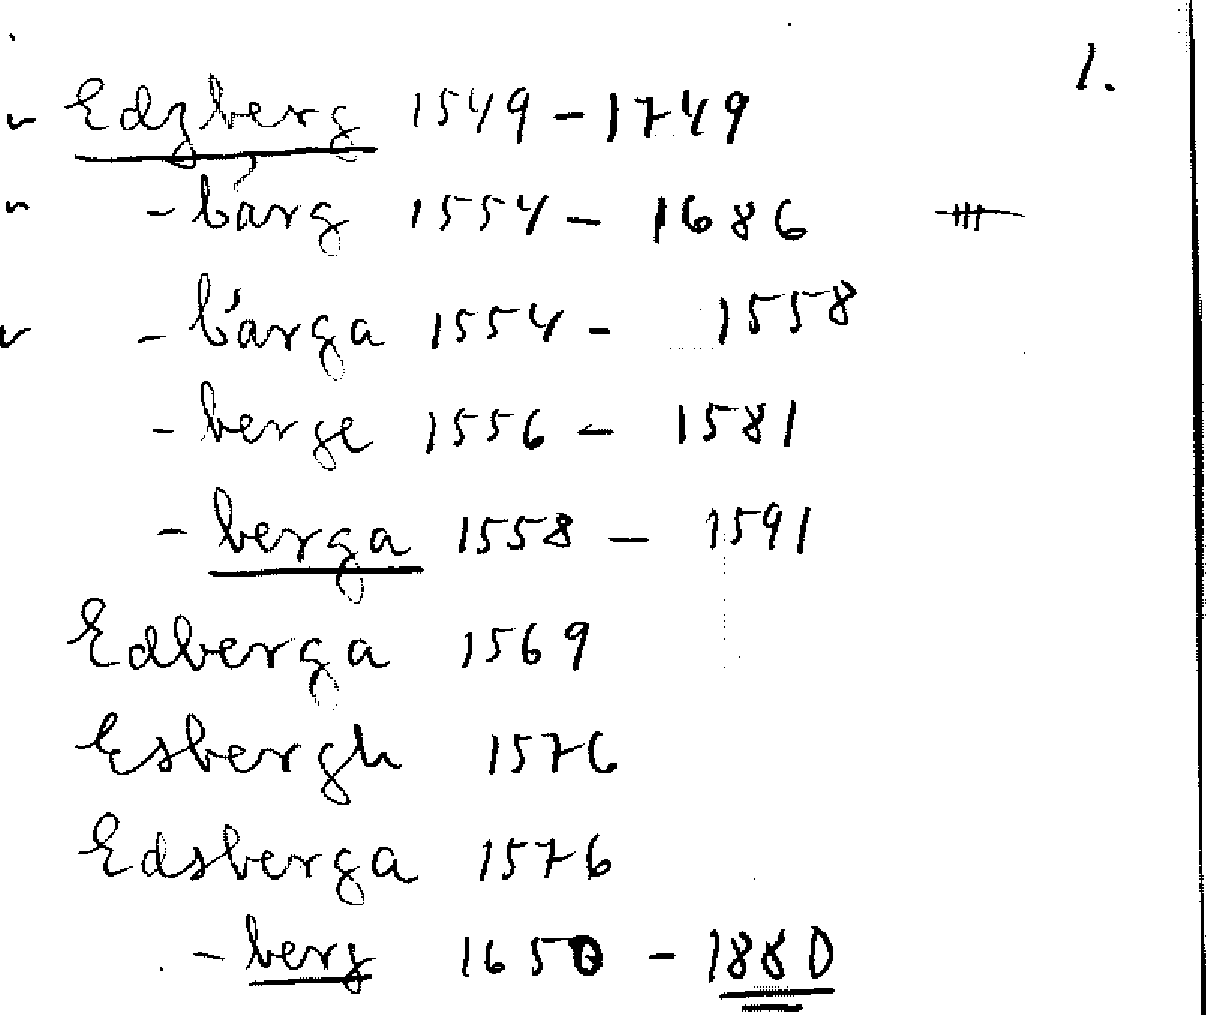 1.
Edzberg 1549-1749
-bärg 1554- 1686
-bärga 1554- 1558
-berge 1556- 1581
-berga 1558- 1591
Edberga 1569
Esbergh 1576
Edsberga 1576
-berg 1650 - 1880